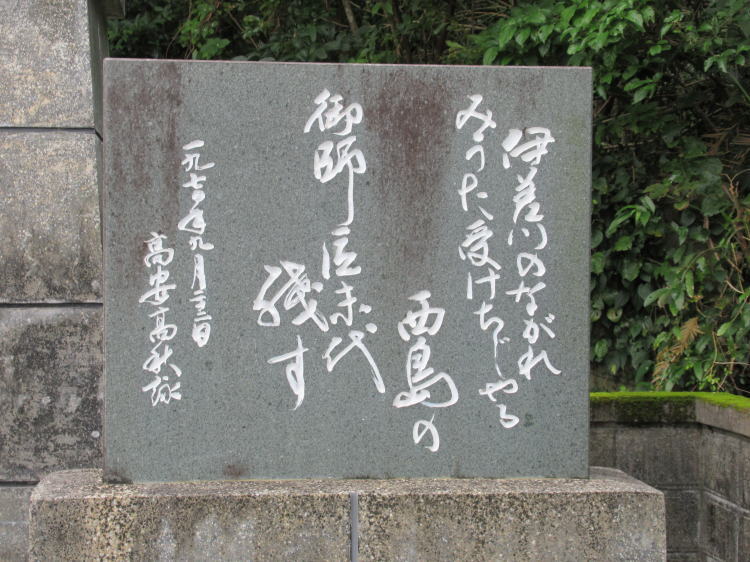 伊差川のながれ
みうた受けちじやる
西島の
御師匠末代
残す
一九七〇年九月二三日
高安高秋詠